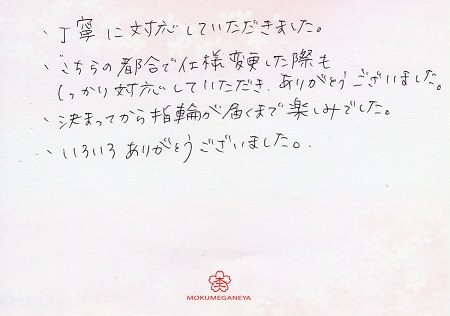 、丁寧に対応していただきました。
、こちらの都合で仕様変更した際も
しっかり対応していただき、ありがとうございました。
、決まってから指輪が届くまで楽しみでした。
、いろいろありがとうございました。
MOKUMEGANEYA